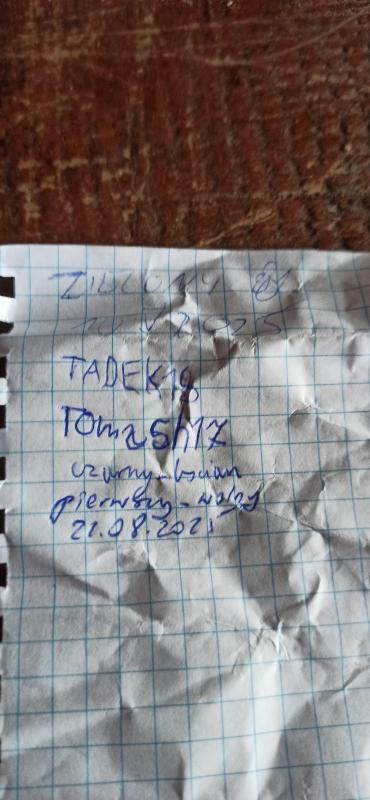 ZIELONY
2025
TADEK18
Tomz5h17
czarny_bocian
pierwszy_wolny
21.08.2021